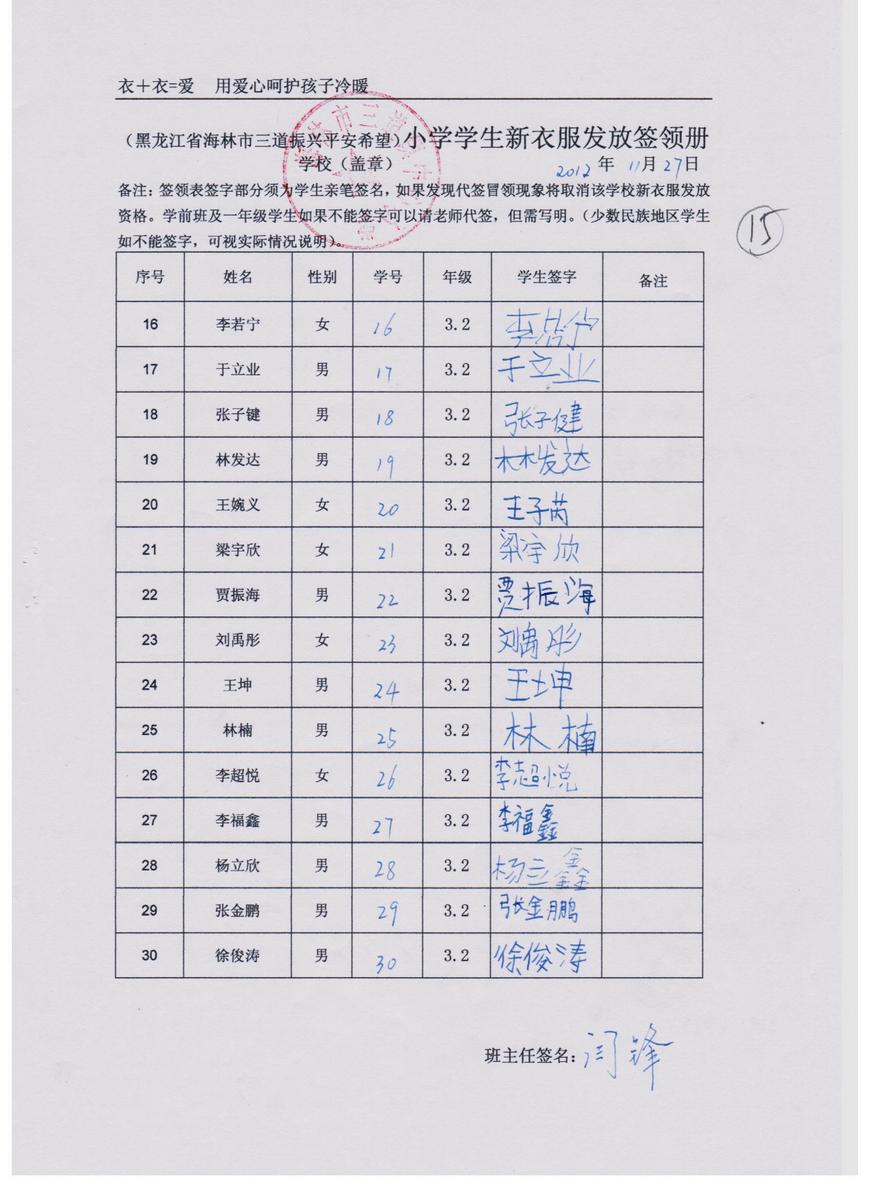 衣+衣=爱 用爱心呵护孩子冷暖
（黑龙江省海林市三道振兴平安希望）小学学生新衣服发放签领册
学校（盖章） 2012 年 11月27日
备注：签领表签字部分须为学生亲笔签名，如果发现代签冒领现象将取消该学校新衣服发放
资格。学前班及一年级学生如果不能签字可以请老师代签，但需写明。（少数民族地区学生
如不能签字，可视实际情况说明）。
15
序号 姓名 性别 学号 年级 学生签字 备注
16 李若宁 女 16 3.2 李若宁
17 于立业 男 17 3.2 于立业
18 张子键 男 18 3.2 张子健
19 林发达 男 19 3.2 林发达
20 王婉义 女 20 3.2 王子芮
21 梁宇欣 女 21 3.2 梁宇欣
22 贾振海 男 22 3.2 贾振海
23 刘禹彤 女 23 3.2 刘禹彤
24 王坤 男 24 3.2 王坤
25 林楠 男 25 3.2 林楠
26 李超悦 女 26 3.2 李超悦
27 李福鑫 男 27 3.2 李福鑫
28 杨立欣 男 28 3.2 杨立鑫
29 张金鹏 男 29 3.2 张金鹏
30 徐俊涛 男 30 3.2 徐俊涛
班主任签名：闫锋